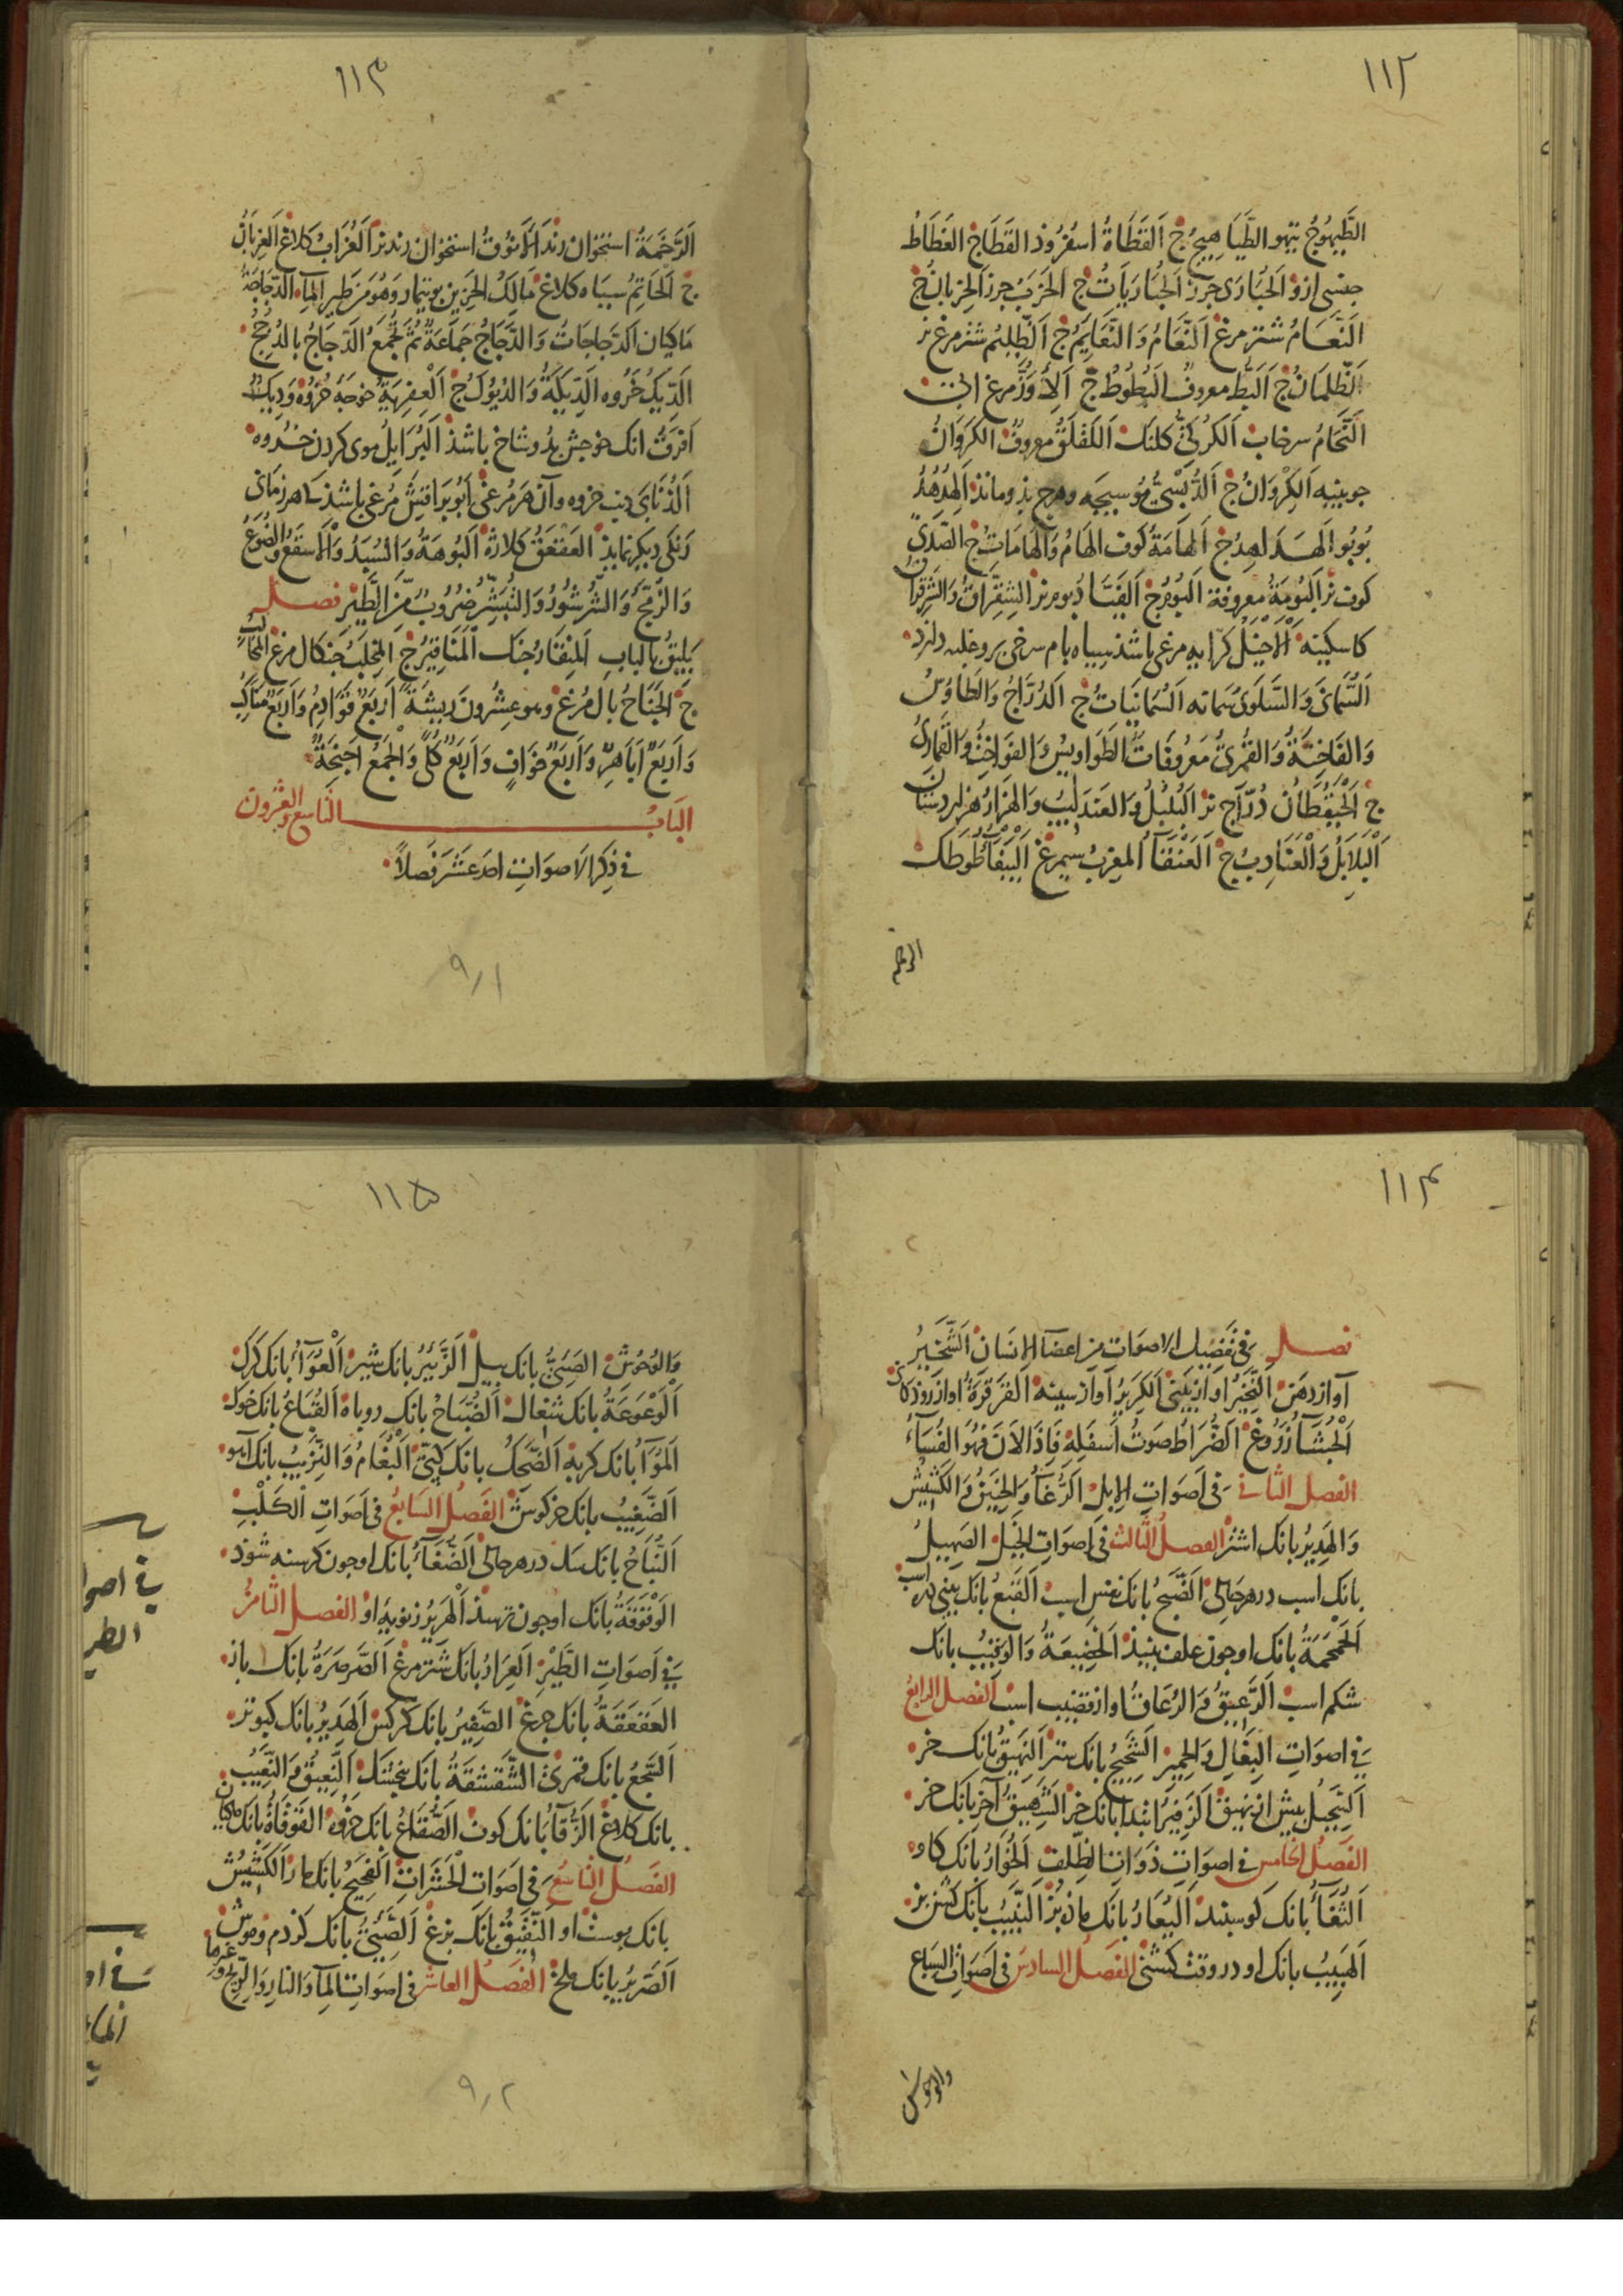 ١١٢
الطَّيهُوجُ تيهو الطَّيَاهِيجُ ج اَلقَطَاةُ اسفرُوذ القَطَاج الغَطَاطُ
جنسى ازو اَلحُبَارَى جرز اَلحُبَارَيَاتُ ج اَلخَرَبُ جرز اَلخِربَانُ ج
اَلنَّعَامُ شتر مرغ اَلنَّعَامُ وَالنَّعَايِمُ ج اَلظَّلِيمُ شتر مرغ نر
اَلظِّلمَانُ ج اَلبَطُّ معروفٌ اَلبُطُوطُ ج اَلاِوَزُّ مرغ ابى
اَلنُّحَامُ سرخاب اَلكُركِىُّ كلنك اَللَّقلَقُ معروفٌ الكَرَوَانُ
جوبينه اَلكِروَانُ ج اَلدُّبسِىُّ مُوسيجه وهرج بذو مانذ اَلهُدهُدُ
بُوبُو اَلهَدَاهِدُ ج اَلهَامَةُ كوف الهَامُ وَالهَامَاتُ ج الصَّدٰى
كوف نر اَلبُومَةُ معروفة اَلبُومُ ج اَلفَيَّادُ بوم نر الشِقِرَّاقُ وَالشَّرِقرَاقُ
كاسكينه اَلاَخيَلُ كرايه مرغى باشذ سياه بام سرخى برو غلبه دارد
اَلسُّمَانَى وَالسَّلوَى سمانه اَلسُّمَانَيَاتُ ج اَلدُّرَّاجُ وَالطَاوُسُ
وَالفَاخِتَةُ وَالقُمرِىُّ مَعرُوفَاتٌ الطَوَاوِيسُ وَالفَوَاخِتُ وَالقَمَارِىُّ
ج اَلحَيقُطَانُ دُرّاج نر اَلبُلبُلُ وَالعَندَلِيبُ وَالهَزَارُ هزاردستان
اَلبَلاَبِلُ وَالعَنَادِبُ ج اَلعَنقَآءُ المغرِبُ سيمرغ اَلبَبَّغَآءُ طُوطَك
الرخم
١١٣
اَلرَّخَمَةُ استخوان رند اَلاَنُوقُ استخوان رند نر اَلغُرَابُ كلاغ اَلغِربَانُ
ج اَلحَاتِمُ سياه كلاغ مَالِكُ الحَزِين بوتيمار وَهُوَ مِن طَيرِ المَآءِ الدَّجَاجَةُ
مَاكيان اَلدَّجَاجَاتُ وَالدَّجَاجُ جَمَاعَةٌ ثُمَّ تُجمَعُ الدَّجَاجُ بالدُجُجِ
اَلدِّيكُ خُرُوه الدِّيَكَةُ وَالدُّيُوكُ ج اَلعِفرِيَةُ خوجهٔ خُرُوه وَدِيكٌ
اَفرَقُ انك خوجش بدوشاخ باشذ اَلبُرَايِلُ موى كردن خُروه
اَلذُّنَابَى دنب خروه وآن هر مرغى اَبُو بَرَاقِش مُرغى باشذ كه هر زمانى
رَنكى ديكر نمايذ العَقعَقُ كلاژه اَلبُوهَةُ وَالسُبَدُ وَالاَسقَعُ والضُّوَعُ
وَالزُّمَّجُ وَالشُّرشُورُ وَالتُّبَشِّرُ ضُرُوبٌ مِنَ الطَّيرِ فصل
يَلِيقُ بالبابِ اَلمِنقَارُ جنك اَلمَنَاقِيرُ ج اَلمِخلَبُ جنكال مرغ اَلمَخَالِبُ
ج اَلجَنَاحُ بال مُرغ وهو عِشرُونَ رِيشَةً اَربَعٌ قَوَادِمُ وَاَربَعٌ مَنَاكِبُ
وَاَربَعٌ اَبَاهِرُ وَاَربَعٌ خَوَافٍ وَاَربَعٌ كُلًى وَالجَمعُ اَجنِحَةٌ
البَابُ التاسع والعشرون
فى ذِكرِ الاَصوَاتِ احدَ عَشَرَ فَصلاً
٩١
١١٤
فصل فى تَفصِيلِ الاصوَاتِ مِن اعضآءِ الاِنسَانِ اَلشَّخِيرُ
آواز دهن اَلنَّخِيرُ آواز بينى اَلكَرِيرُ آواز سينه القَرقَرَةُ آواز روذكان
اَلجُشَآءُ زُروغ اَلضُّرَاطُ صَوتُ اَسفَلِهِ فَاِذَا لاَنَ فَهُوَ الفُسَآءُ
الفصل الثانى فى اَصوَاتِ الاِبِل اَلرُّغَآءُ وَالحَنِينُ وَالكَشِيشُ
وَالهَدِيرُ بانك اشتر الفصلُ الثالث فى اَصوَاتِ الخَيل الصَهِيلُ
بانك اسب در هر حالى اَلضَّبحُ بانك نفس اسب اَلقَبعُ بانك بينى اسب
اَلحَمحَمَةُ بانك او جون علف بيند اَلخَضِيعَةُ وَالوَقِيبُ بانك
شكم اسب اَلرَّعِيقُ وَالرُّعَاقُ آواز قضيب اسب الفصل الرابع
فى اصوَاتِ البِغَالِ وَالحَمِير الشَّحِيجُ بانك ستر اَلنَّهِيقُ بانك خر
اَلسَّحِيلُ بيش از نهيق اَلزَّفِيرُ ابتدا بانك خر اَلشَّهِيقُ آخر بانك خر
الفَصلُ الخامس فى اصوَاتِ ذَوَاتِ الظِّلفِ اَلخُوَارُ بانك كاو
اَلثُّغَآءُ بانك كوسبند اَليُعَارُ بانك ماذه بز النَّبِيبُ بانك كشن بز
اَلهَبِيبُ بانك او در وقت كشنى الفَصلُ السادس فى اَصوَاتِ السباع
والوحوش
١١٥
وَالوُحُوش الصَئِىُّ بانك بيل اَلزَّئِيرُ بانك شير اَلعُوَآءُ بانك كرك
اَلوَعوَعَةُ بانك شغال اَلضُّبَاحُ بانك روباه اَلقُبَاعُ بانك خوك
اَلمُوَآءُ بانك كربه اَلضَّحكُ بانك كبى اَلبُغَامُ وَالنَّزِيبُ بانك آهو
اَلضَّغِيبُ بانك خركوش الفَصلُ السَابعُ فى اَصوَاتِ الكَلبِ
اَلنُّبَاحُ بانك سك در هر حالى اَلضُّغَآءُ بانك او جون كرسنه شوذ
الوَقوَقَةُ بانك او جون ترسذ اَلهَرِيرُ زنويهٔ او الفصل الثامنُ
فى اَصوَاتِ الطَّيرِ اَلعِرَارُ بانك شتر مرغ اَلصَّرصَرَةُ بانك باز
العَقعَقَةُ بانك جرغ الصَّفِيرُ بانك كركس اَلهَدِيرُ بانك كبوتر
اَلسَّجعُ بانك قمرى الشَّقشَقَةُ بانك بنجشك اَلنَّعِيقُ وَالنَّعِيبُ
بانك كلاغ الزُّقَآءُ بانك كوف الصُّقَاعُ بانك خروه القَوقَاةُ بانك ماكيان
الفَصلُ التاسعُ فى اَصوَاتِ الحَشَرَاتِ اَلفَحِيحُ بانك مار اَلكَشِيشُ
بانك بوست او النَّقِيقُ بانك بزغ اَلصَّئِىُّ بانك كزدم وموش
اَلصَّرِيرُ بانك ملخ الفَصلُ العاشر فى اصوَاتِ المَآءِ وَالنارِ وَالرِّيحِ وغيرها
فى اصوا
الطير
فى ا
الما
٩٢